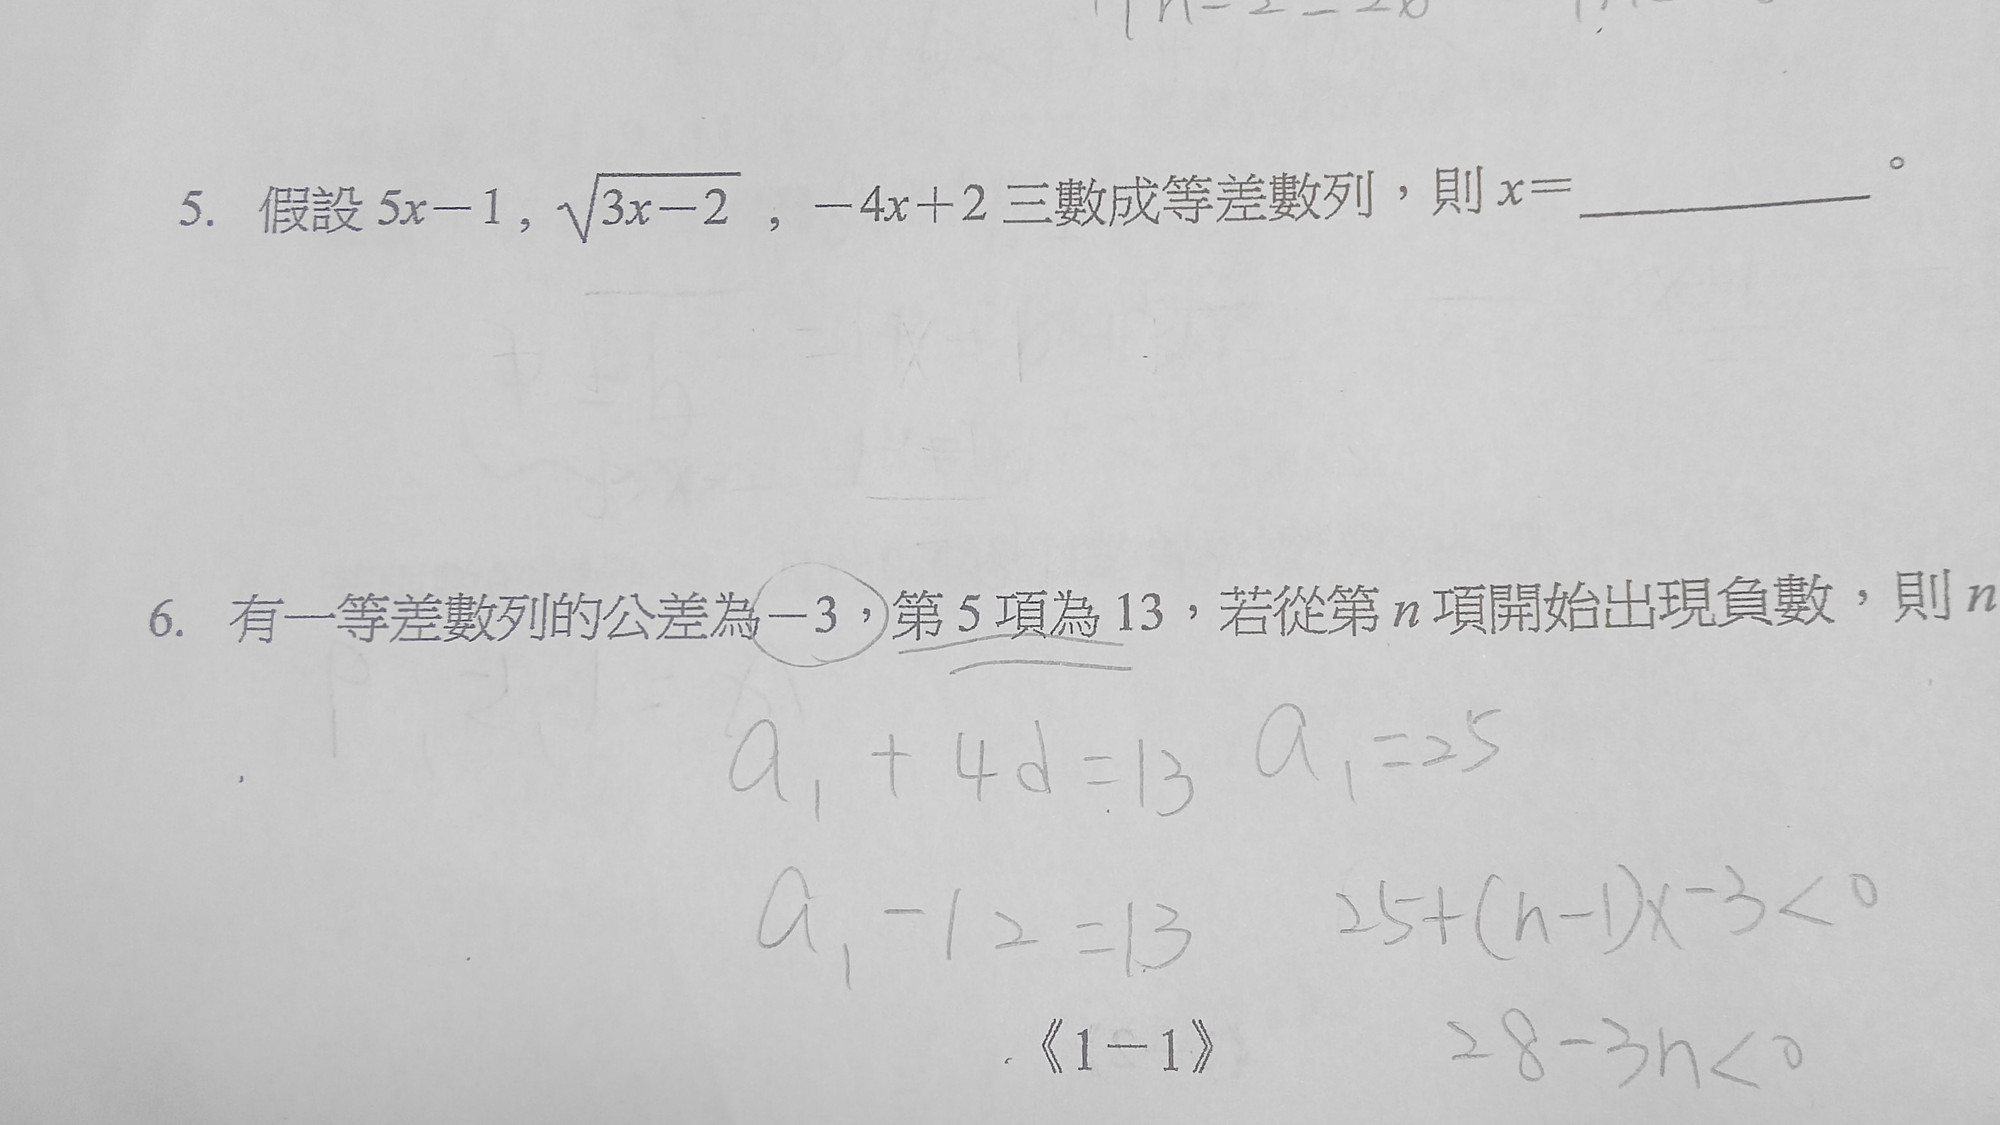 5. 假設 5x－1 , √3x－2 , －4x＋2 三數成等差數列，則 x＝__________。
6. 有一等差數列的公差為－3，第 5 項為 13，若從第 n 項開始出現負數，則 n
a₁ + 4d = 13 a₁ = 25
a₁ - 12 = 13 25+(n-1)x-3<0
《1－1》 28-3n<0